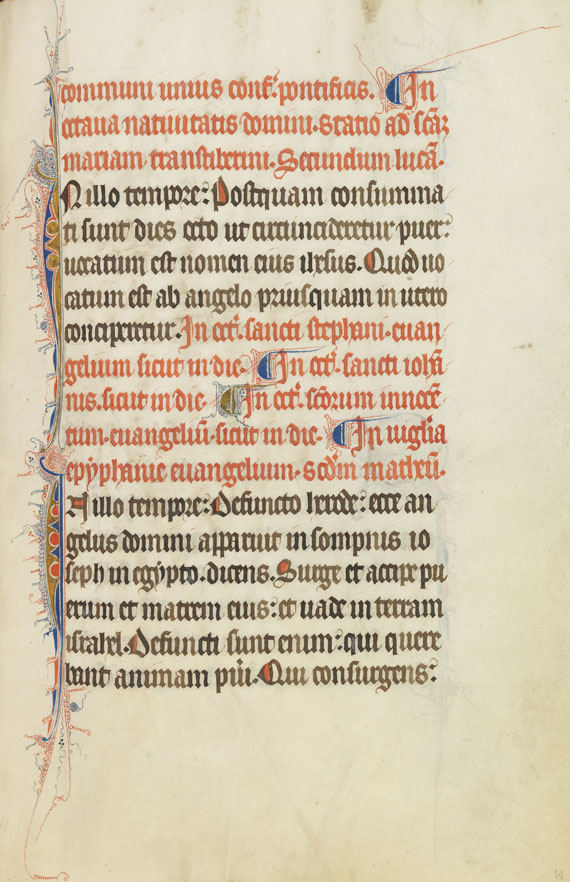 communi unius conf̄. pontificis. In
octaua natiuitatis domini. Statio ad scāȝ
mariam transtiberini. Secundum lucā.
N illo tempore: Postquam consumma
ti sunt dies octo ut circuncideretur puer:
uocatum est nomen eius ihesus. Quod uo
catum est ab angelo priusquam in utero
conciperetur. In oct̄. sancti stephani. euan
gelium sicut in die. In oct̄. sancti iohā
nis. sicut in die. In oct̄. scōrum innocē
tum. euangeliū. sicut in die. In uiglia
epyphanie euangelium. scdm̄ matheū.
A illo tempore: Defuncto herode: ecce an
gelus domini apparuit in sompnis io
seph in egypto. dicens. Surge et accipe pu
erum et matrem eius: et uade in terram
israhel. Defuncti sunt enim: qui quere
bant animam pūi. Qui consurgens: